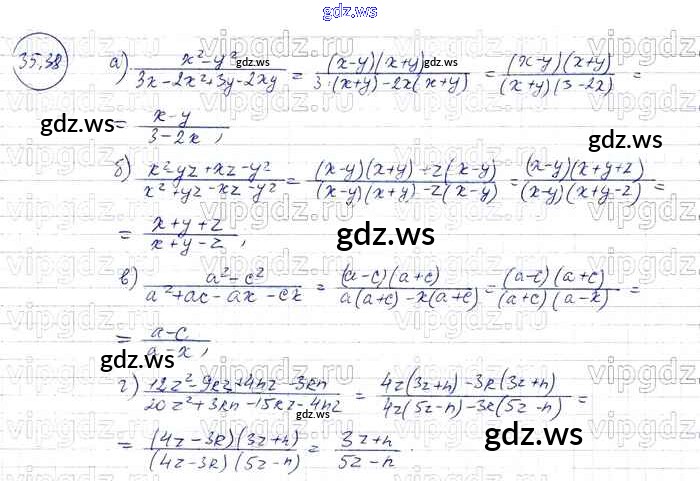 gdz.ws
35.38 а) (x²-y²)/(3x-2x²+3y-2xy) = ((x-y)(x+y))/(3·(x+y)-2x(x+y)) = ((x-y)(x+y))/((x+y)(3-2x)) =
= (x-y)/(3-2x),
б) (x²-yz+xz-y²)/(x²+yz-xz-y²) = ((x-y)(x+y)+z(x-y))/((x-y)(x+y)-z(x-y)) = ((x-y)(x+y+z))/((x-y)(x+y-z)) =
= (x+y+z)/(x+y-z),
в) (a²-c²)/(a²+ac-ax-cx) = ((a-c)(a+c))/(a(a+c)-x(a+c)) = ((a-c)(a+c))/((a+c)(a-x)) =
= (a-c)/(a-x),
г) (12z²-9kz+4nz-3kn)/(20z²+3kn-15kz-4nz) = (4z(3z+n)-3k(3z+n))/(4z(5z-n)-3k(5z-n)) =
= ((4z-3k)(3z+n))/((4z-3k)(5z-n)) = (3z+n)/(5z-n).